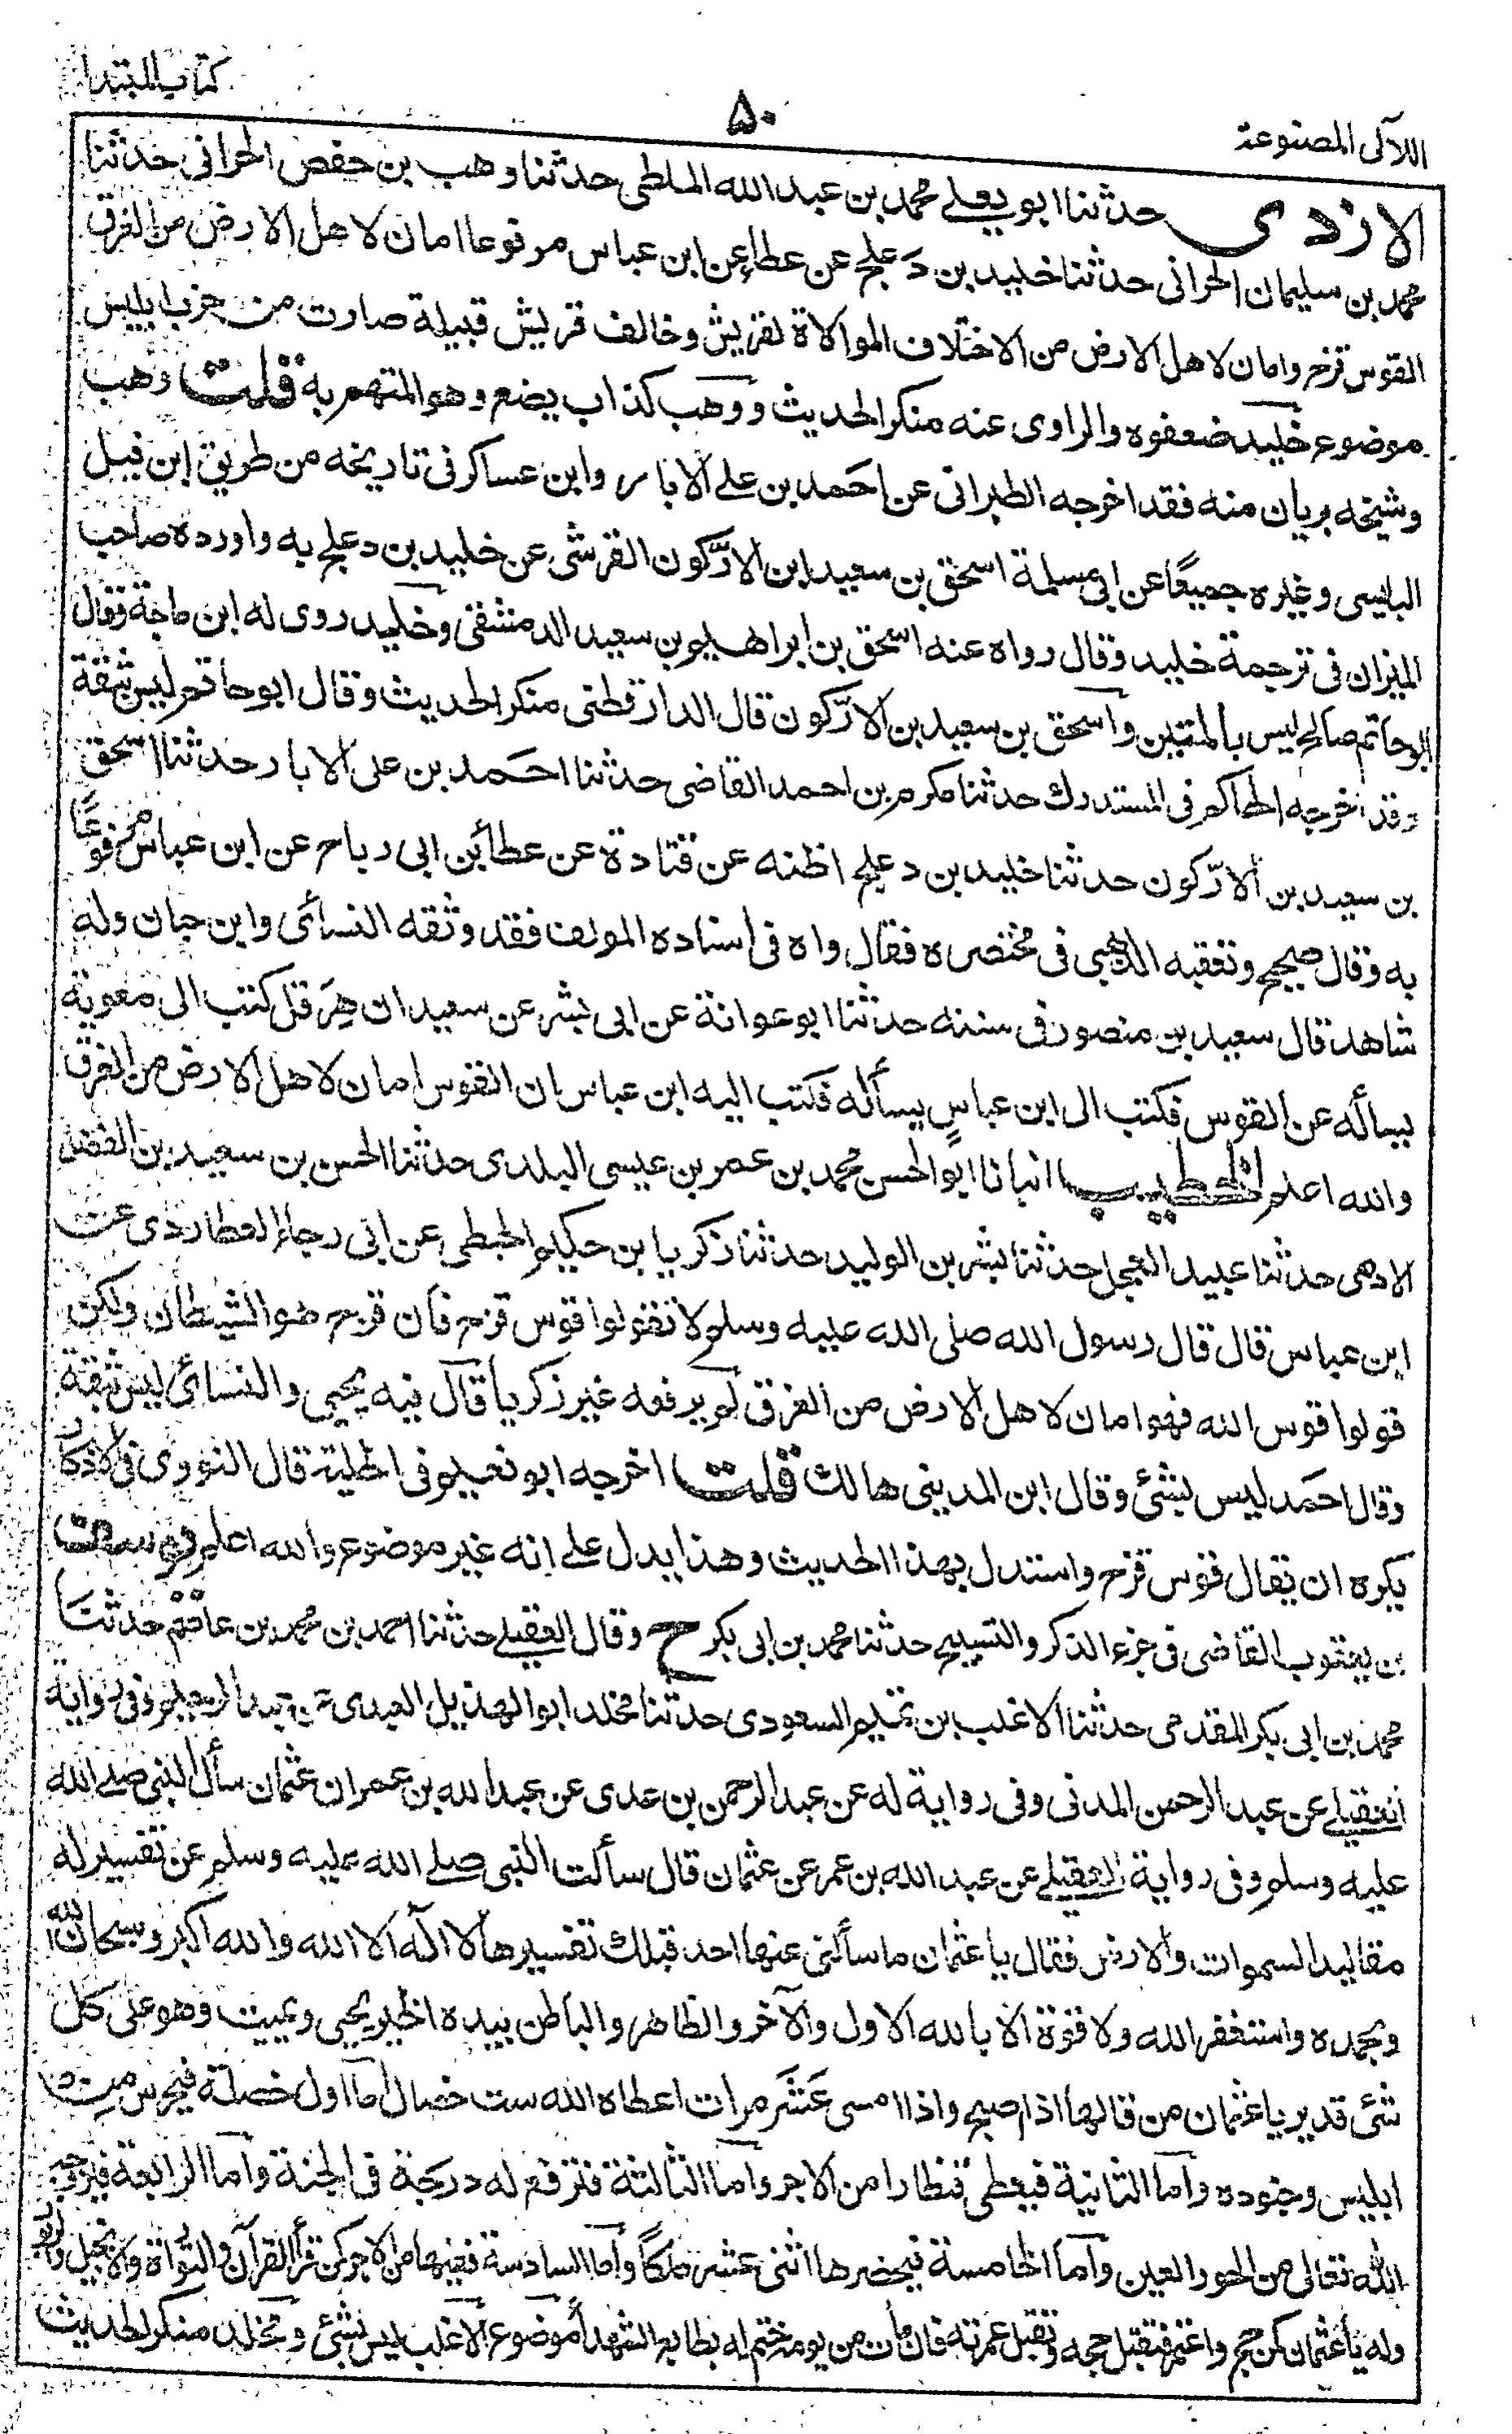 كتاب المبتدا
۵۰
اللآلى المصنوعة
الازدى حدثنا ابو يعلے محمد بن عبد الله الملطى حدثنا وهب بن حفص الحرانى حدثنا
محمد بن سليمان الحرانى حدثنا خليد بن دَعلج عن عطاء عن ابن عباس مرفوعا امان لاهل الارض من الغرق
القوس قزح وامان لاهل الارض من الاختلاف الموالاة لقريش وخالف قريش قبيلة صارت من حزب ابليس
موضوع خليد ضعفوه والراوى عنه منكر الحديث ووهب كذاب يضع وهو المتهم به قلت وهب
وشيخه بريان منه فقد اخرجه الطبرانى عن احمد بن علے الابار وابن عساكر فى تاريخه من طريق ابن فيل
البالسى وغيره جميعًا عن ابى مسلمة اسحق بن سعيد ابن الارّكون القرشى عن خليد بن دعلج به واورده صاحب
الميزان فى ترجمة خليد وقال رواه عنه اسحق بن ابراهيم بن سعيد الدمشقى وخليد روى له ابن ماجة وقال
ابو حاتم صالح ليس بالمتين وآسحق بن سعيد بن الارّكون قال الدارقطنى منكر الحديث وقال ابو حاتم ليس بثقة
وقد اخرجه الحاكم فى المستدرك حدثنا مكرم بن احمد القاضى حدثنا احمد بن على الابار حدثنا اسحق
بن سعيد بن الارّكون حدثنا خليد بن دعلج اظنه عن قتادة عن عطاء بن ابى رباح عن ابن عباس مرفوعًا
به وقال صحيح وتعقبه الذهبى فى مختصره فقال واه فى اسناده المولف فقد وثقه النسائى وابن حبان وله
شاهد قال سعيد بن منصور فى سننه حدثنا ابو عوانة عن ابى بشر عن سعيد ان هِرَقل كتب الى معوية
يسأله عن القوس فكتب الى ابن عباسٍ يسأله فكتب اليه ابن عباس ان القوس امان لاهل الارض من الغرق
والله اعلم الخطيب انبانا ابو الحسن محمد بن عمر بن عيسى البلدى حدثنا الحسن بن سعيد بن الفضل
الادمى حدثنا عبيد العجل حدثنا بشر بن الوليد حدثنا زكريا بن حكيم الحبطى عن ابى رجاء العطاردى عن
ابن عباس قال قال رسول الله صلى الله عليه وسلم لا تقولوا قوس قزح فان قزح هو الشيطان ولكن
قولوا قوس الله فهو امان لاهل الارض من الغرق لم يرفعه غير زكريا قآل فيه يحيى والنسائى ليس بثقة
وقال احمد ليس بشئ وقال ابن المدينى هالك قلت اخرجه ابو نعيم فى الحلية قال النووى فى الاذكار
يكره ان يقال قوس قزح واستدل بهذا الحديث وهذا يدل علے انه غير موضوع والله اعلم يوسف
بن يعقوب القاضى فى جزء الذكر والتسبيح حدثنا محمد بن ابى بكر ح وقال العقيلے حدثنا احمد بن محمد بن عاصم حدثنا
محمد بن ابى بكر المقدمى حدثنا الاغلب بن تميم السعودى حدثنا مخلد ابو الهذيل العبدى عن عبد الرحيم وفى رواية
العقيلے عن عبد الرحمن المدنى وفى رواية له عن عبد الرحمن بن عدى عن عبد الله بن عمر ان عثمان سأل النبى صلے الله
عليه وسلم وفى رواية العقيلے عن عبد الله بن عمر عن عثمان قال سألت النبى صلے الله عليه وسلم عن تفسير له
مقاليد السموات والارض فقال يا عثمان ما سألنى عنها احد قبلك تفسيرها لا اله الا الله والله اكبر وسبحان الله
وبحمده واستغفر الله ولا قوة الا بالله الاول والآخر والظاهر والباطن بيده الخير يحيى ويميت وهو على كل
شئ قدير يا عثمان من قالها اذا صبح واذا امسى عَشَر مرات اعطاه الله ست خصال امآ اول خصلة فيحرس من
ابليس وجنوده وآما الثانية فيعطى قنطارا من الاجر وآما الثالثة فترفع له درجة فى الجنة وآما الرابعة فيزوجه
الله تعالى من الحور العين وآما الخامسة فيحضرها اثنى عشر ملكًا وآما السادسة ففيها من الاجر كمن قرأ القرآن والتوراة والانجيل والزبور
وله يا عثمان كمن حج واعتمر فتقبل حجه وتقبل عمرته فان مات من يومه ختم له بطابع الشهداء موضوع الآغلب ليس بشئ ومخلد منكر الحديث